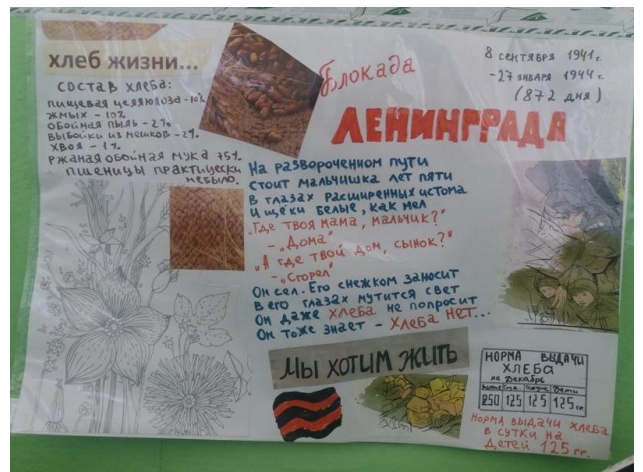 хлеб жизни...
СОСТАВ ХЛЕБА:
пищевая целлюлоза - 10%
жмых - 10%
обойная пыль - 2%
выбойки из мешков - 2%
хвоя - 1%
ржаная обойная мука 75%
пшеницы практически
небыло.
Блокада
ЛЕНИНГРАДА
8 сентября 1941 г.
- 27 января 1944 г.
(872 дня)
На развороченном пути
Стоит мальчишка лет пяти
В глазах расширенных истома
И щёки белые, как мел
„Где твоя мама, мальчик?"
- „Дома"
„А где твой дом, сынок?"
- „Сгорел"
Он сел. Его снежком заносит
В его глазах мутится свет
Он даже хлеба не попросит
Он тоже знает - Хлеба нет...
МЫ ХОТИМ ЖИТЬ
НОРМА ВЫДАЧИ
ХЛЕБА
на Декабрь
Дети
250 125 125 125 гр.
Норма выдачи хлеба
в сутки на
Детей 125 гр.